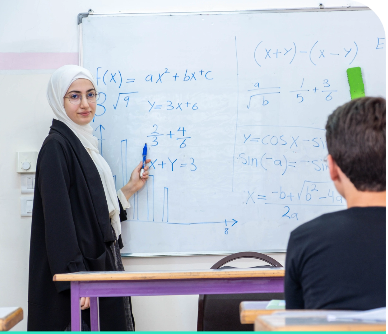 f(x) = ax² + bx + c
3 √9
y = 3x + 6
2/3 + 4/6
x + y = 3
8
(x + y) - (x - y)
a/√b 1/5 + 3/6
y = cos x - sin
sin(-a) = -sin
x = -b + √b² - 4a
2a